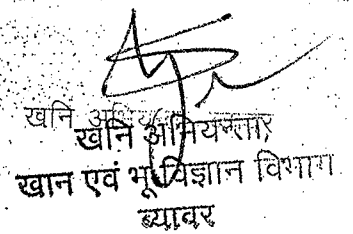 खनि अभियन्ता
खनि अभियन्ता
खान एवं भू-विज्ञान विभाग
ब्यावर